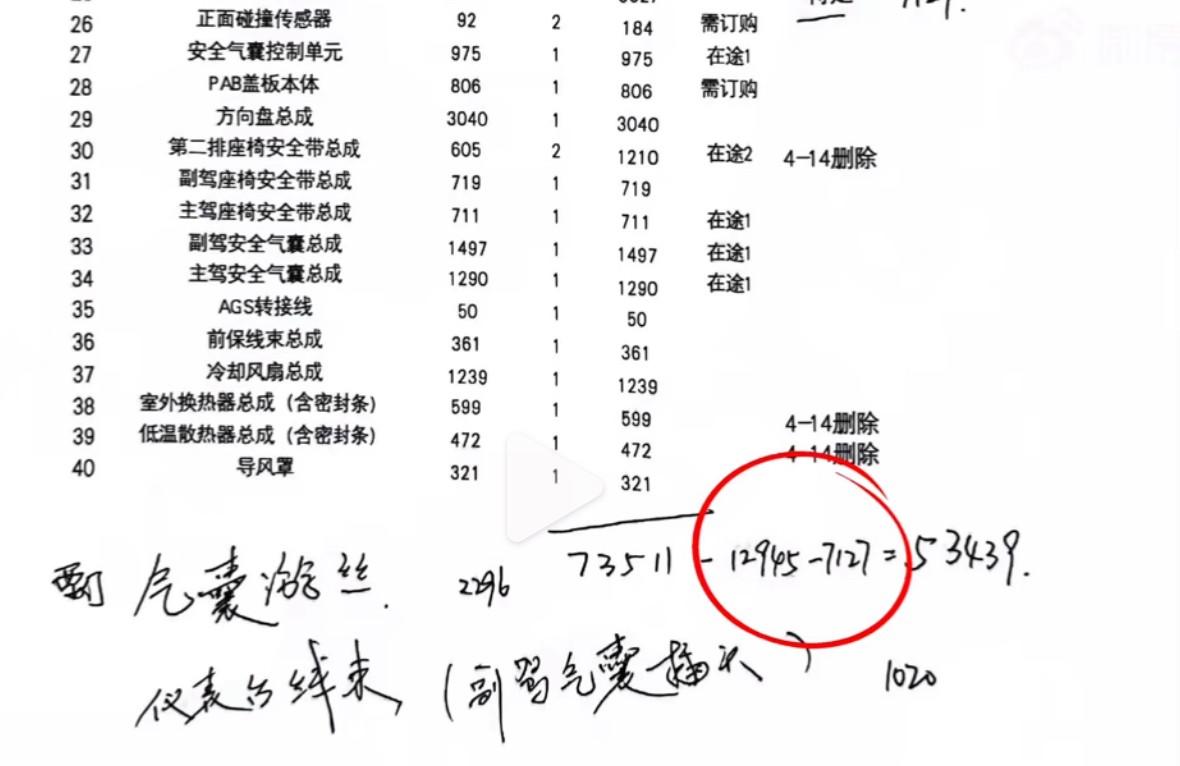 26 正面碰撞传感器 92 2 184 需订购
27 安全气囊控制单元 975 1 975 在途1
28 PAB盖板本体 806 1 806 需订购
29 方向盘总成 3040 1 3040
30 第二排座椅安全带总成 605 2 1210 在途2 4-14删除
31 副驾座椅安全带总成 719 1 719
32 主驾座椅安全带总成 711 1 711 在途1
33 副驾安全气囊总成 1497 1 1497 在途1
34 主驾安全气囊总成 1290 1 1290 在途1
35 AGS转接线 50 1 50
36 前保线束总成 361 1 361
37 冷却风扇总成 1239 1 1239
38 室外换热器总成（含密封条） 599 1 599 4-14删除
39 低温散热器总成（含密封条） 472 1 472 4-14删除
40 导风罩 321 1 321
73511 - 12945 - 7127 = 53439.
气囊游丝. 2296
仪表台线束 (副驾气囊插头) 1020